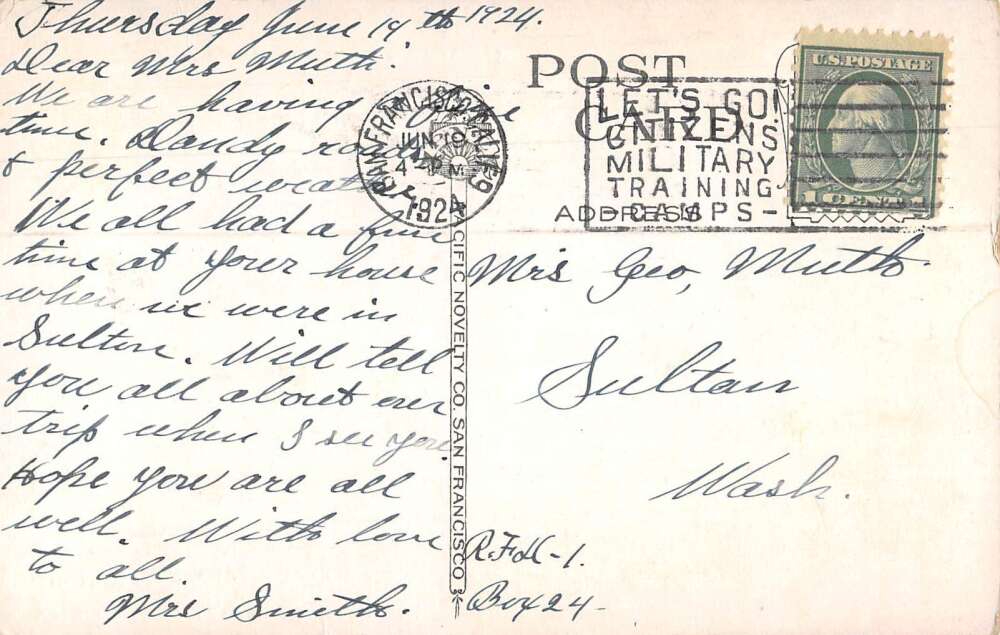 Thursday June 19th 1924.
Dear Mrs Muth.
We are having a fine
time. Dandy roads
& perfect weather
We all had a fine
time at your house
when we were in
Sultan. Will tell
you all about our
trip when I see you.
Hope you are all
well. With love
to all.
Mrs Smith.
SAN FRANCISCO, CALIF.
JUN 19
4 PM
1924
POST CARD
LET'S GO!
CITIZENS
MILITARY
TRAINING
-CAMPS-
U.S. POSTAGE
1 CENT 1
ADDRESS
Mrs Geo, Muth.
Sultan
Wash.
R.F.D-1.
Box 24-
PACIFIC NOVELTY CO. SAN FRANCISCO